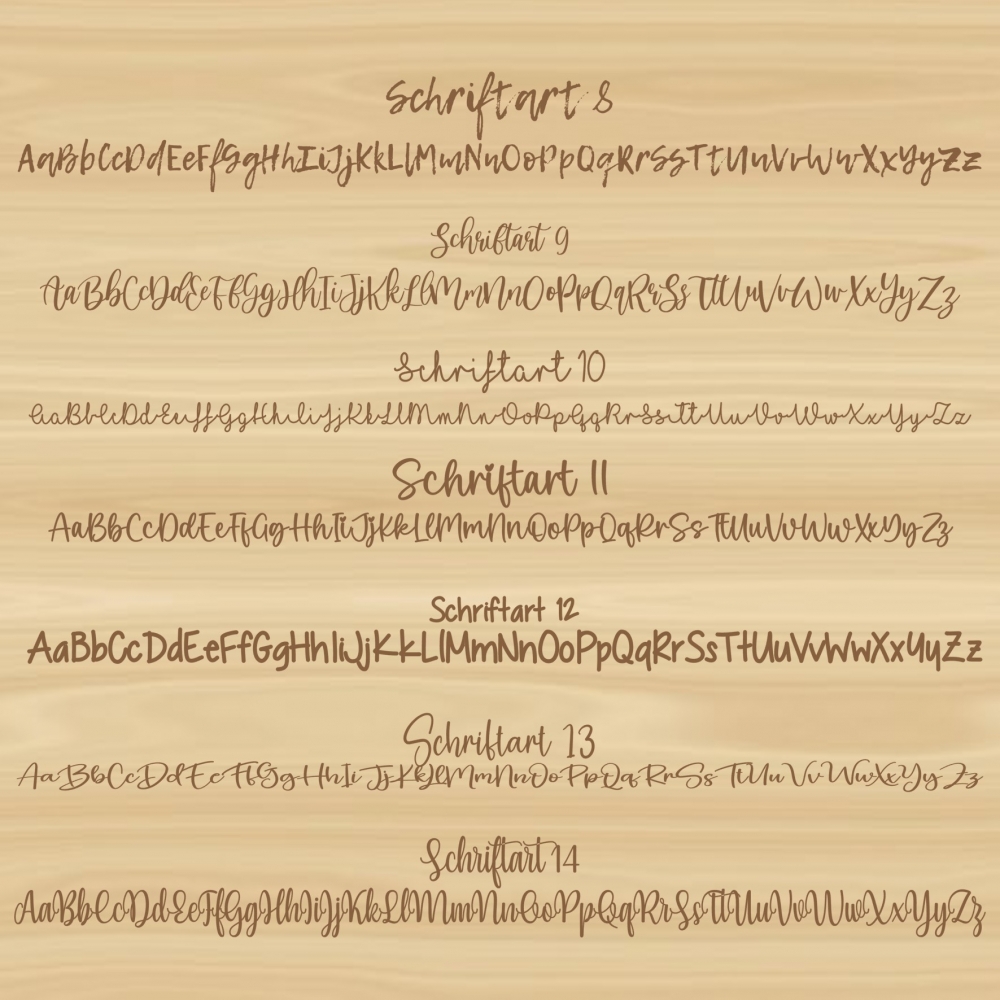 Schriftart 8
AaBbCcDdEeFfGgHhIiJjKkLlMmNnOoPpQqRrSsTtUuVvWwXxYyZz
Schriftart 9
AaBbCcDdEeFfGgHhIiJjKkLlMmNnOoPpQqRrSsTtUuVvWwXxYyZz
Schriftart 10
AaBbCcDdEeFfGgHhIiJjKkLlMmNnOoPpQqRrSsTtUuVvWwXxYyZz
Schriftart 11
AaBbCcDdEeFfGgHhIiJjKkLlMmNnOoPpQqRrSsTtUuVvWwXxYyZz
Schriftart 12
AaBbCcDdEeFfGgHhIiJjKkLlMmNnOoPpQqRrSsTtUuVvWwXxYyZz
Schriftart 13
AaBbCcDdEeFfGgHhIiJjKkLlMmNnOoPpQqRrSsTtUuVvWwXxYyZz
Schriftart 14
AaBbCcDdEeFfGgHhIiJjKkLlMmNnOoPpQqRrSsTtUuVvWwXxYyZz